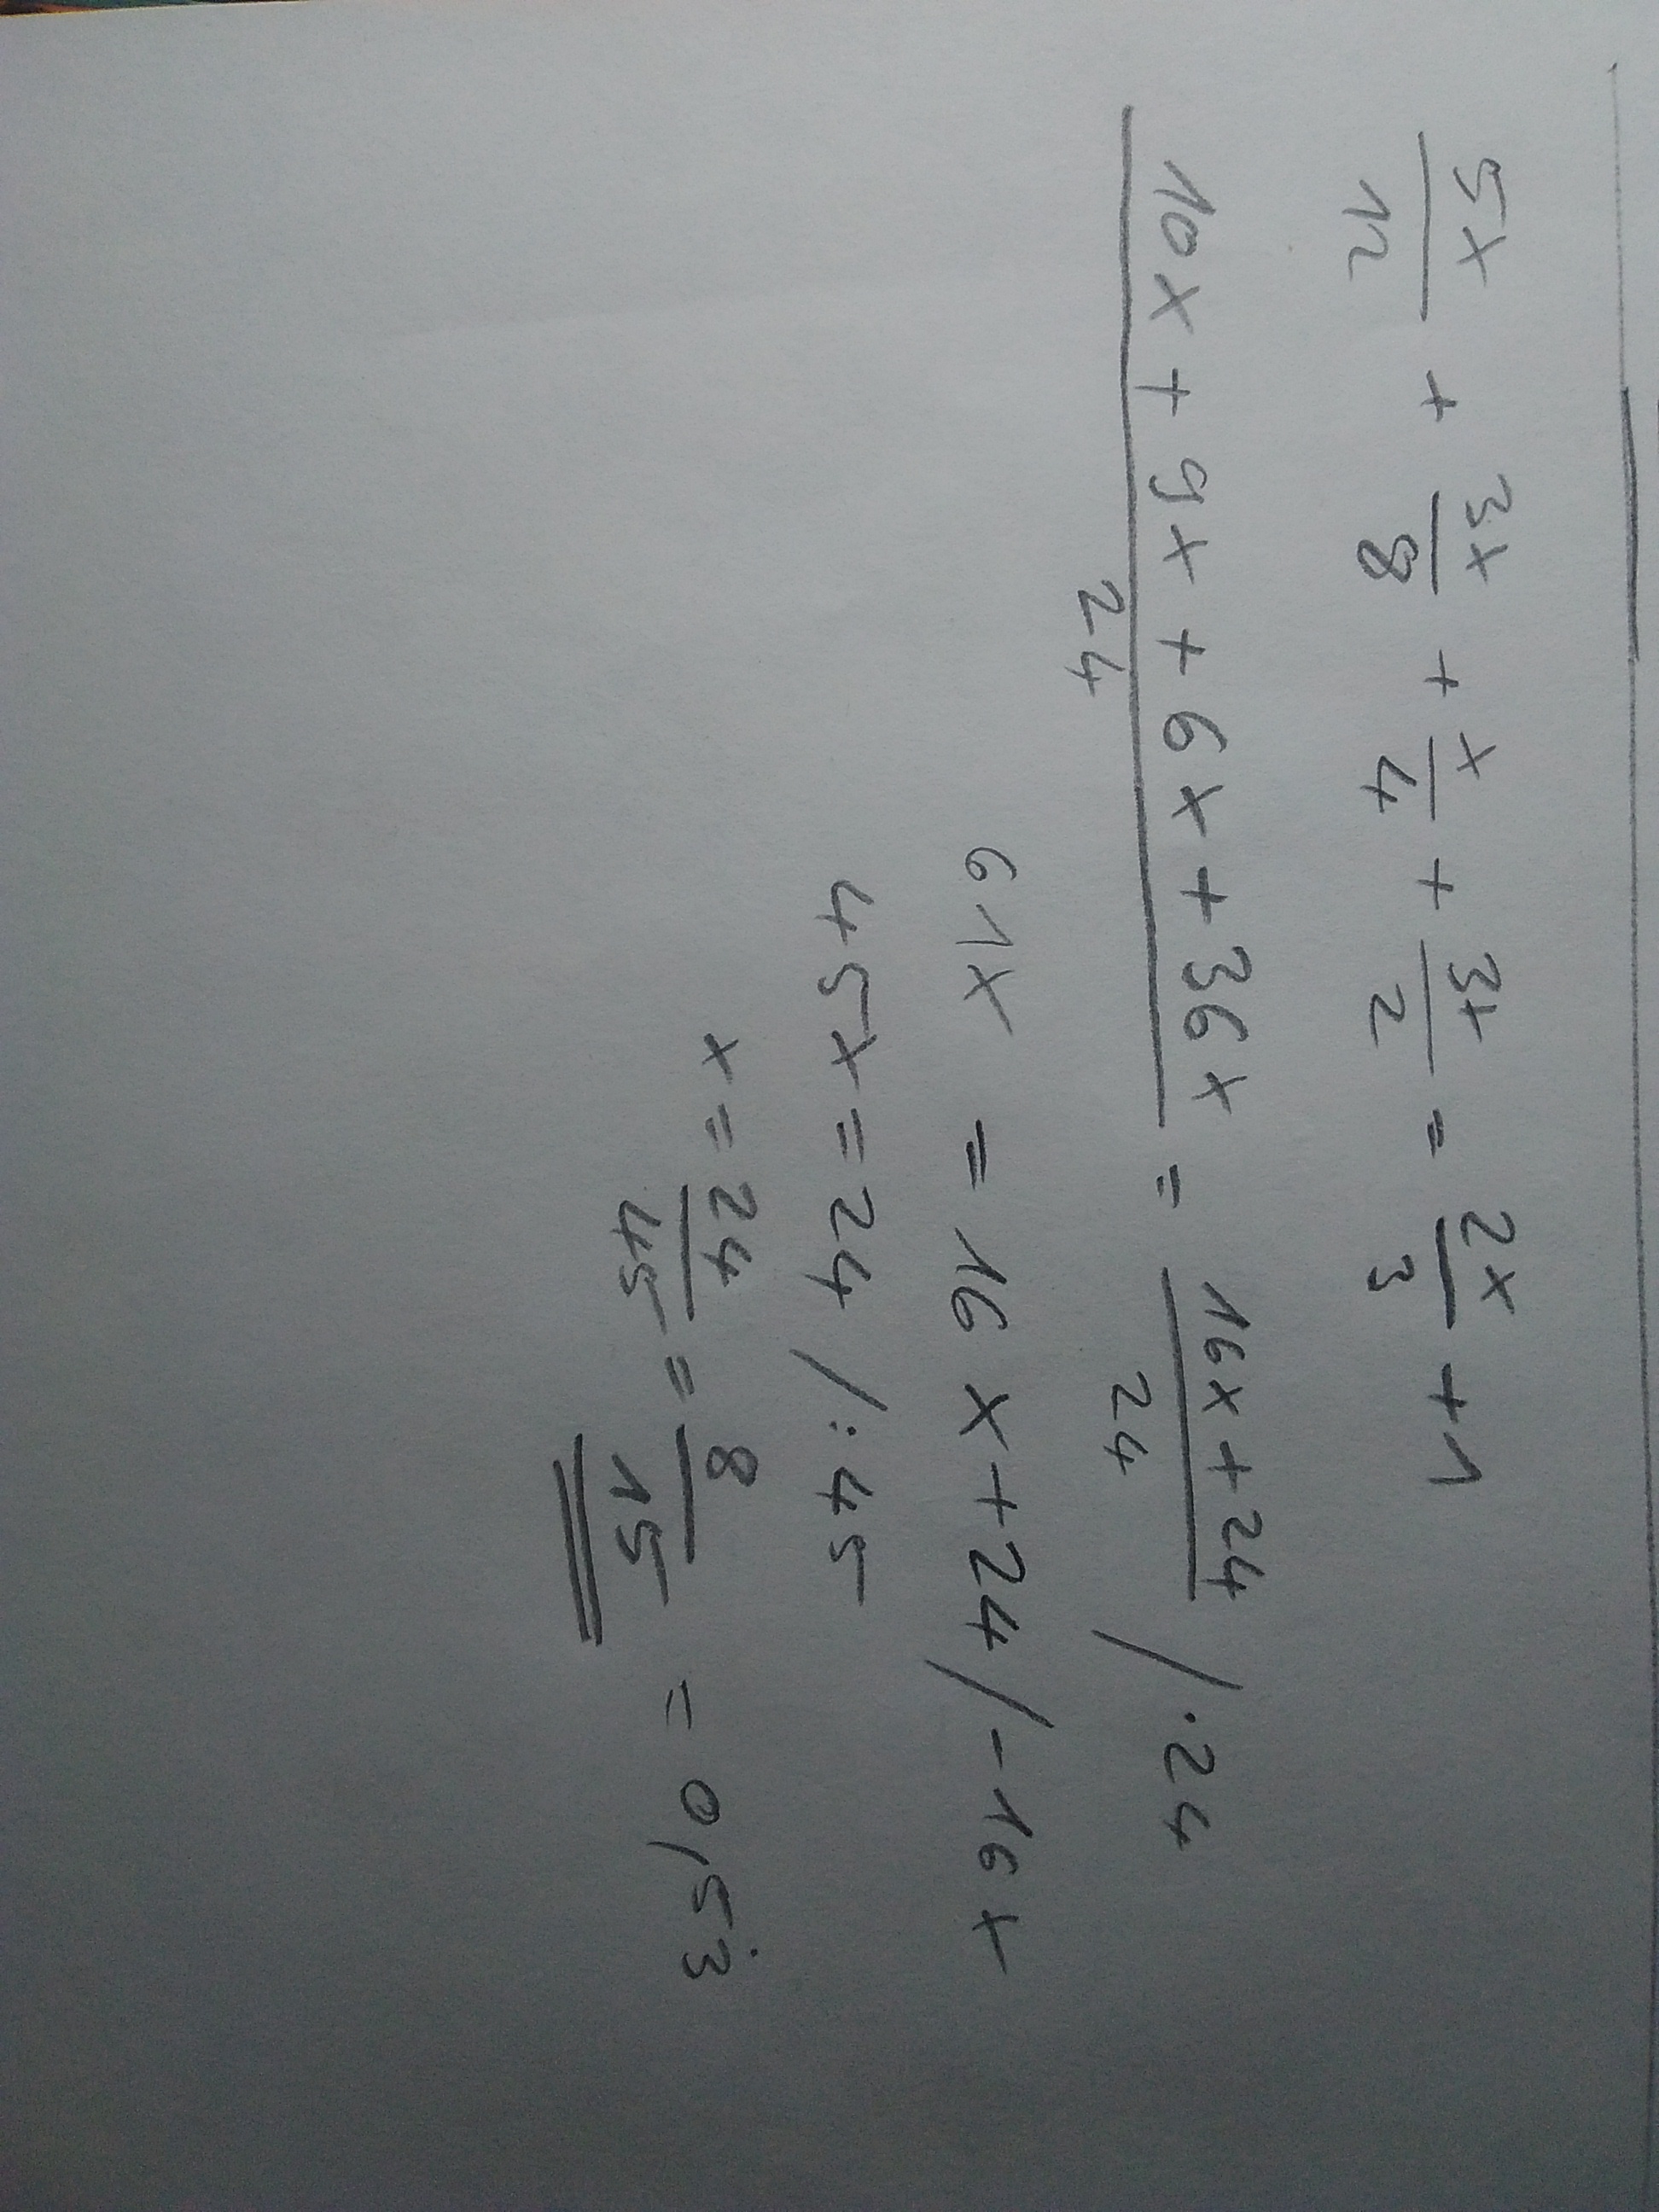 5x/12 + 3x/8 + x/4 + 3x/2 = 2x/3 + 1
10x + 9x + 6x + 36x / 24 = 16x + 24 / 24 / · 24
61x = 16x + 24 / - 16x
45x = 24 / : 45
x = 24/45 = 8/15 = 0,53̇